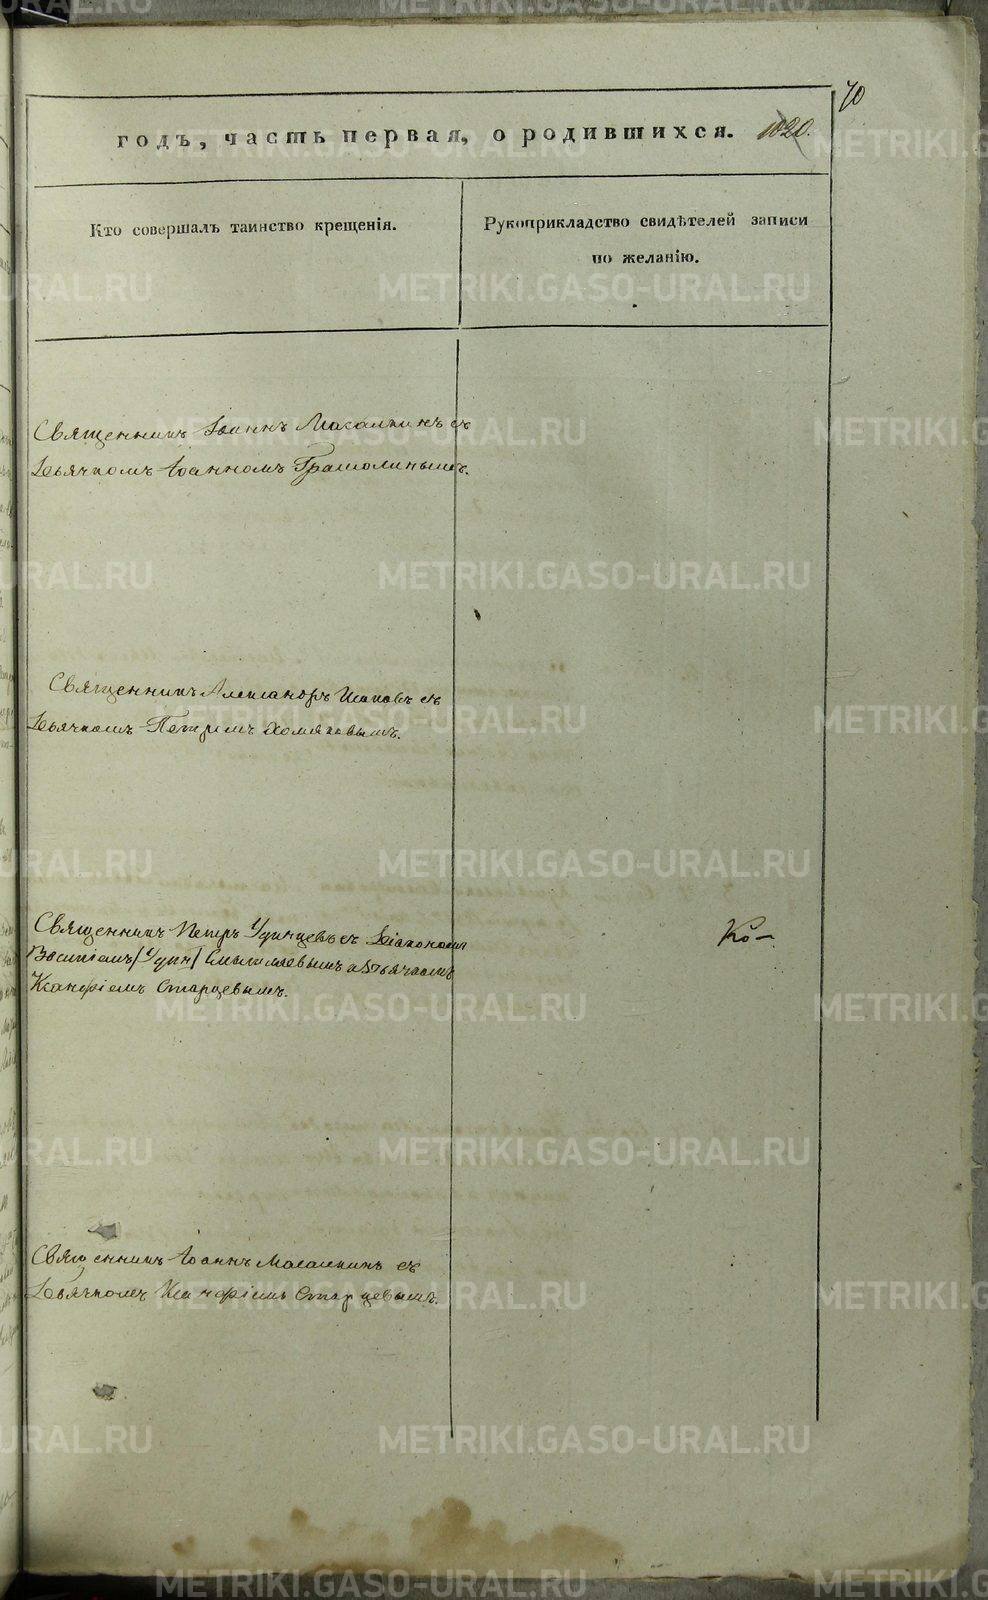 70
годъ, часть первая, о родившихся. 1020.
Кто совершалъ таинство крещенія.
Рукоприкладство свидѣтелей записи
по желанію.
Священникъ Іоаннъ Масалкинъ съ
Дьячкомъ Іоанномъ Грамолинымъ.
Священникъ Александръ Исаковъ съ
Дьячкомъ Петромъ Хомяковымъ.
Священникъ Петръ Удинцевъ съ Діакономъ
Василіемъ Смыкаловымъ и Дьячкомъ
Ксанфіемъ Старцевымъ.
Священникъ Іоаннъ Масалкинъ съ
Дьячкомъ Ксанфіемъ Старцевымъ.
METRIKI.GASO-URAL.RU